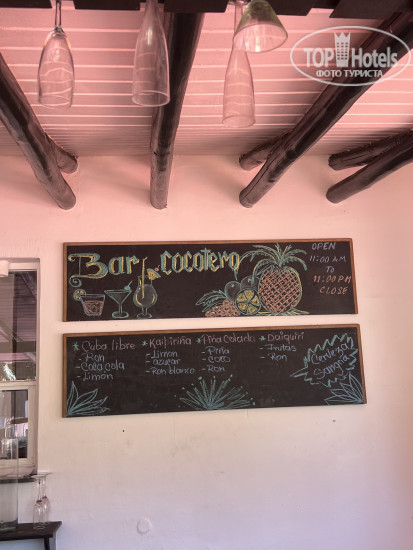 TOP Hotels
ФОТО ТУРИСТА
Bar cocotero
OPEN
11:00 AM
TO
11:00 PM
CLOSE
*Cuba libre
- Ron
- Coca cola
- Limon
*Kaipiriña
- Limon
- azucar
- Ron blanco
*Piña Colada
- Piña
- coco
- Ron
*Daiquiri
- Frutas
- Ron
Cerveza
Sangria